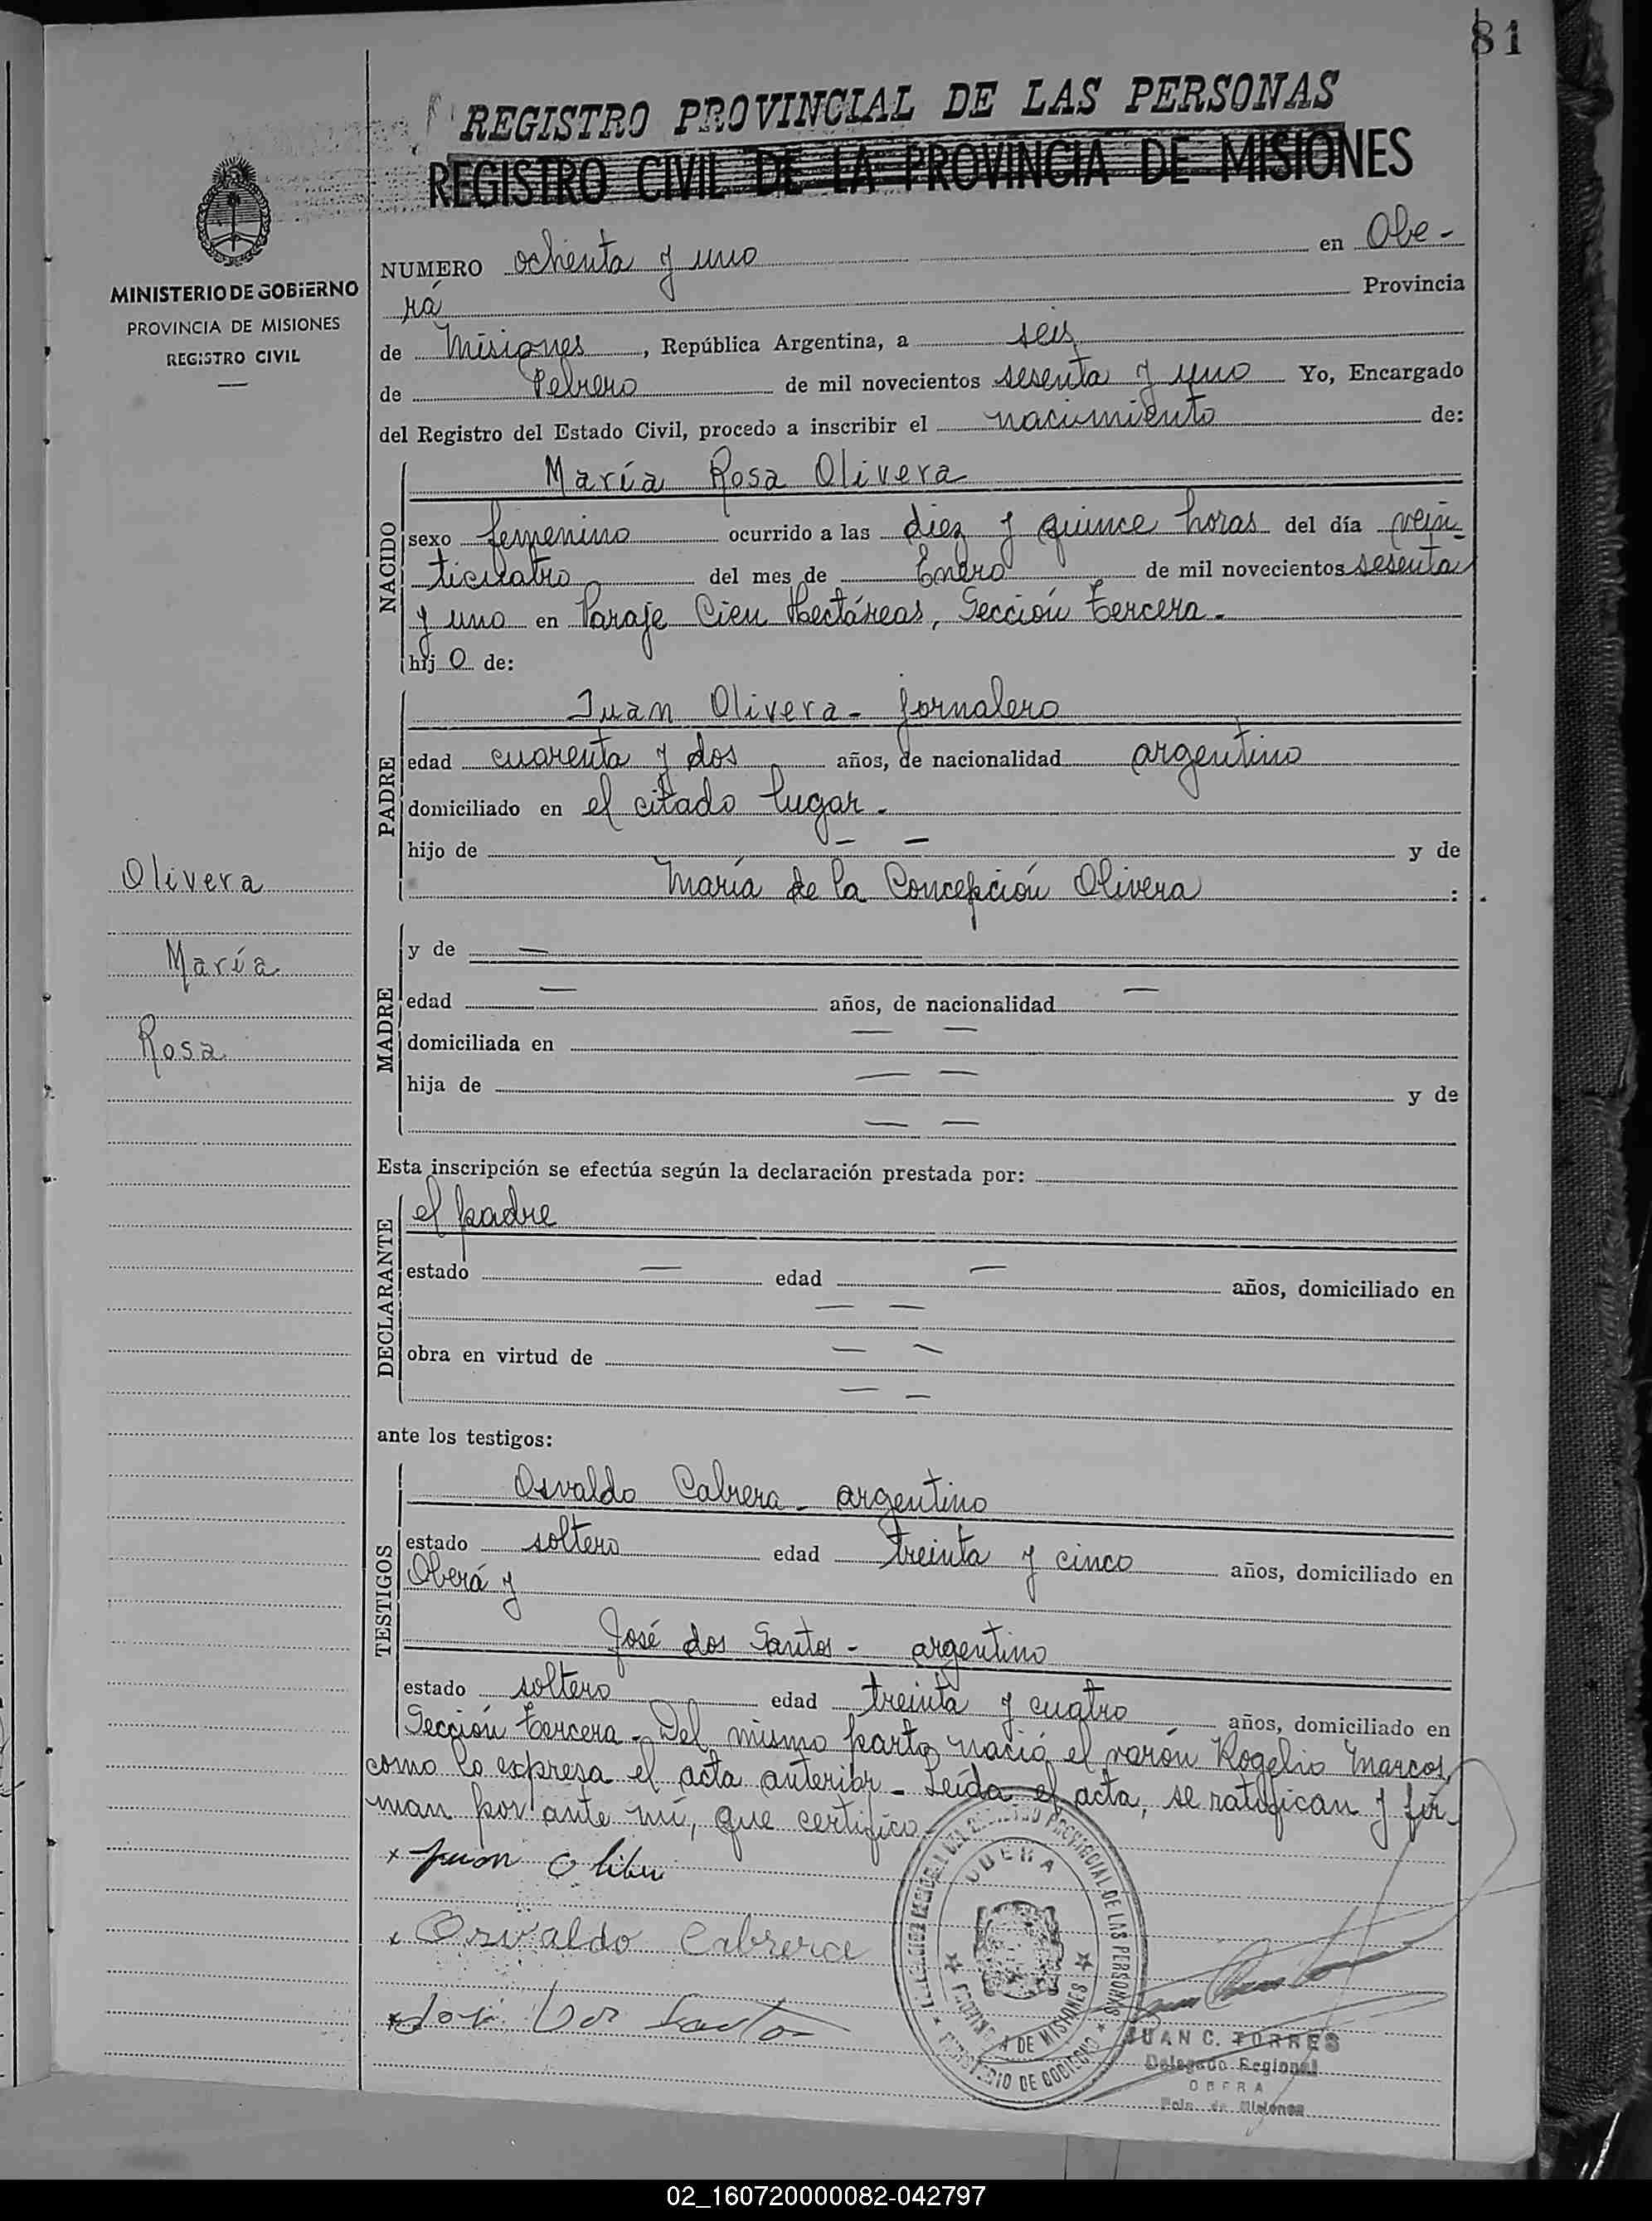 81
REGISTRO PROVINCIAL DE LAS PERSONAS
REGISTRO CIVIL DE LA PROVINCIA DE MISIONES
MINISTERIO DE GOBIERNO
PROVINCIA DE MISIONES
REGISTRO CIVIL
NUMERO ochenta y uno en Obe-
rá Provincia
de Misiones, República Argentina, a seis
de Febrero de mil novecientos sesenta y uno Yo, Encargado
del Registro del Estado Civil, procedo a inscribir el nacimiento de:
NACIDO
María Rosa Olivera
sexo femenino ocurrido a las diez y quince horas del día vein-
ticuatro del mes de Enero de mil novecientos sesenta
y uno en Paraje Cien Hectáreas, Sección tercera.-
hij o de:
PADRE
Juan Olivera - jornalero
edad cuarenta y dos años, de nacionalidad argentino
domiciliado en el citado lugar.-
hijo de — — y de
María de la Concepción Olivera :
Olivera
María
Rosa
MADRE
y de —
edad — años, de nacionalidad —
domiciliada en — —
hija de — — y de
— —
Esta inscripción se efectúa según la declaración prestada por:
DECLARANTE
el padre
estado — edad — años, domiciliado en
— —
obra en virtud de — —
— —
ante los testigos:
TESTIGOS
Osvaldo Cabrera - argentino
estado soltero edad treinta y cinco años, domiciliado en
Oberá y
José dos Santos - argentino
estado soltero edad treinta y cuatro años, domiciliado en
Sección tercera - Del mismo parto nació el varón Rogelio Marcos,
como lo expresa el acta anterior - Leída el acta, se ratifican y fir-
man por ante mí, que certifico.
x Juan
x Osvaldo Cabrera
x José Dos Santo
OBERA
PROVINCIAL DE LAS PERSONAS
MINISTERIO DE GOBIERNO
DE MISIONES
JUAN C. TORRES
Delegado Regional
OBERA
Pcia. de Misiones
02_160720000082-042797